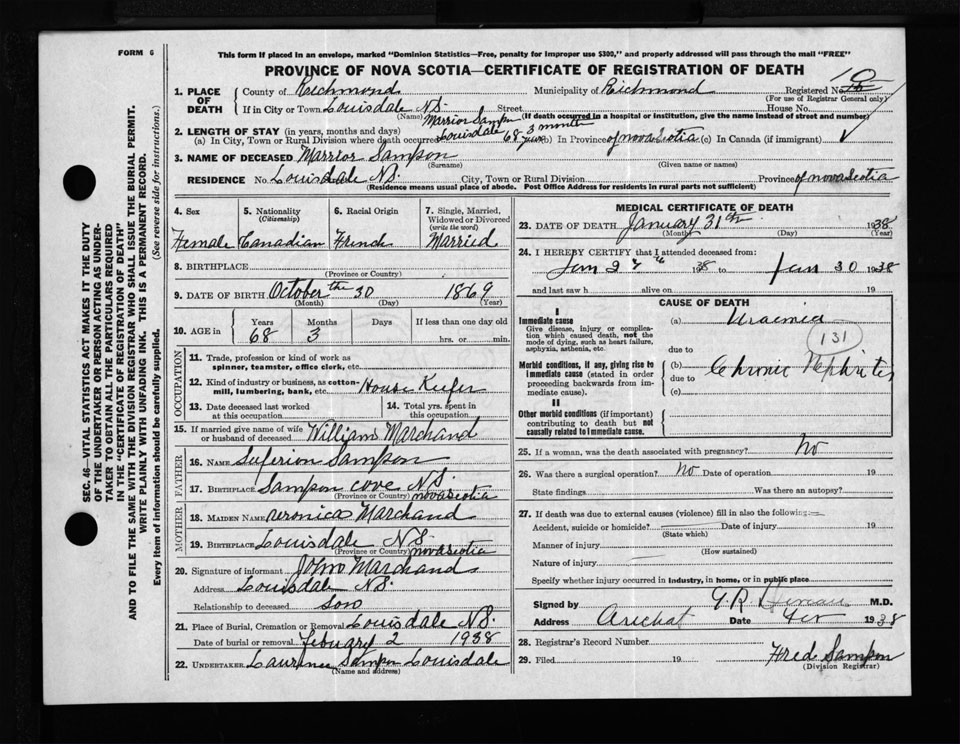 FORM 6
This form if placed in an envelope, marked "Dominion Statistics—Free, penalty for improper use $300," and properly addressed will pass through the mail "FREE"
PROVINCE OF NOVA SCOTIA—CERTIFICATE OF REGISTRATION OF DEATH
SEC. 46—VITAL STATISTICS ACT MAKES IT THE DUTY
OF THE UNDERTAKER OR PERSON ACTING AS UNDER-
TAKER TO OBTAIN ALL THE PARTICULARS REQUIRED
IN THE "CERTIFICATE OF REGISTRATION OF DEATH"
AND TO FILE THE SAME WITH THE DIVISION REGISTRAR WHO SHALL ISSUE THE BURIAL PERMIT.
WRITE PLAINLY WITH UNFADING INK. THIS IS A PERMANENT RECORD.
Every item of information should be carefully supplied. (See reverse side for instructions.)
1. PLACE OF DEATH
County of Richmond Municipality of Richmond Registered No. 10
(For use of Registrar General only)
If in City or Town Louisdale N.S. Street House No.
(Name) Marrior Sampson (If death occurred in a hospital or institution, give the name instead of street and number)
2. LENGTH OF STAY (in years, months and days)
(a) In City, Town or Rural Division where death occurred Louisdale 68 years 3 months (b) In Province of nova Scotia (c) In Canada (if immigrant)
3. NAME OF DECEASED Marrior Sampson
(Surname) (Given name or names)
RESIDENCE No. Louisdale N.S. City, Town or Rural Division Province of nova Scotia
(Residence means usual place of abode. Post Office Address for residents in rural parts not sufficient)
4. Sex Female
5. Nationality (Citizenship) Canadian
6. Racial Origin French
7. Single, Married, Widowed or Divorced (write the word) Married
8. BIRTHPLACE
(Province or Country)
9. DATE OF BIRTH October the 30 1869
(Month) (Day) (Year)
10. AGE in Years 68 Months 3 Days If less than one day old hrs. or min.
OCCUPATION
11. Trade, profession or kind of work as spinner, teamster, office clerk, etc.
12. Kind of industry or business, as cotton-mill, lumbering, bank, etc. House Keefer
13. Date deceased last worked at this occupation
14. Total yrs. spent in this occupation
15. If married give name of wife or husband of deceased William Marchand
FATHER
16. Name Suferion Sampson
17. Birthplace Sampson cove N.S.
(Province or Country) nova scotia
MOTHER
18. Maiden Name veronica Marchand
19. Birthplace Louisdale N.S.
(Province or Country) nova scotia
20. Signature of informant John Marchand
Address Louisdale N.S.
Relationship to deceased son
21. Place of Burial, Cremation or Removal Louisdale N.S.
Date of burial or removal febuary 2 1938
22. UNDERTAKER Laurence Sampson Louisdale
(Name and address)
MEDICAL CERTIFICATE OF DEATH
23. DATE OF DEATH January 31th 1938
(Month) (Day) (Year)
24. I HEREBY CERTIFY that I attended deceased from:
Jan 38 to Jan 30 1938
and last saw h alive on 19
CAUSE OF DEATH
I
Immediate cause
Give disease, injury or complication which caused death, not the mode of dying, such as heart failure, asphyxia, asthenia, etc.
(a) Uraemia
131
due to
Morbid conditions, if any, giving rise to immediate cause (stated in order proceeding backwards from immediate cause).
(b) Chronic Nephrites
due to
(c)
II
Other morbid conditions (if important) contributing to death but not causally related to immediate cause.
25. If a woman, was the death associated with pregnancy? No
26. Was there a surgical operation? No Date of operation 19
State findings Was there an autopsy?
27. If death was due to external causes (violence) fill in also the following:
Accident, suicide or homicide? Date of injury 19
(State which)
Manner of injury
(How sustained)
Nature of injury
Specify whether injury occurred in industry, in home, or in public place
Signed by G.R. M.D.
Address Arichat Date 1938
28. Registrar's Record Number
29. Filed 19 Fred Sampson
(Division Registrar)